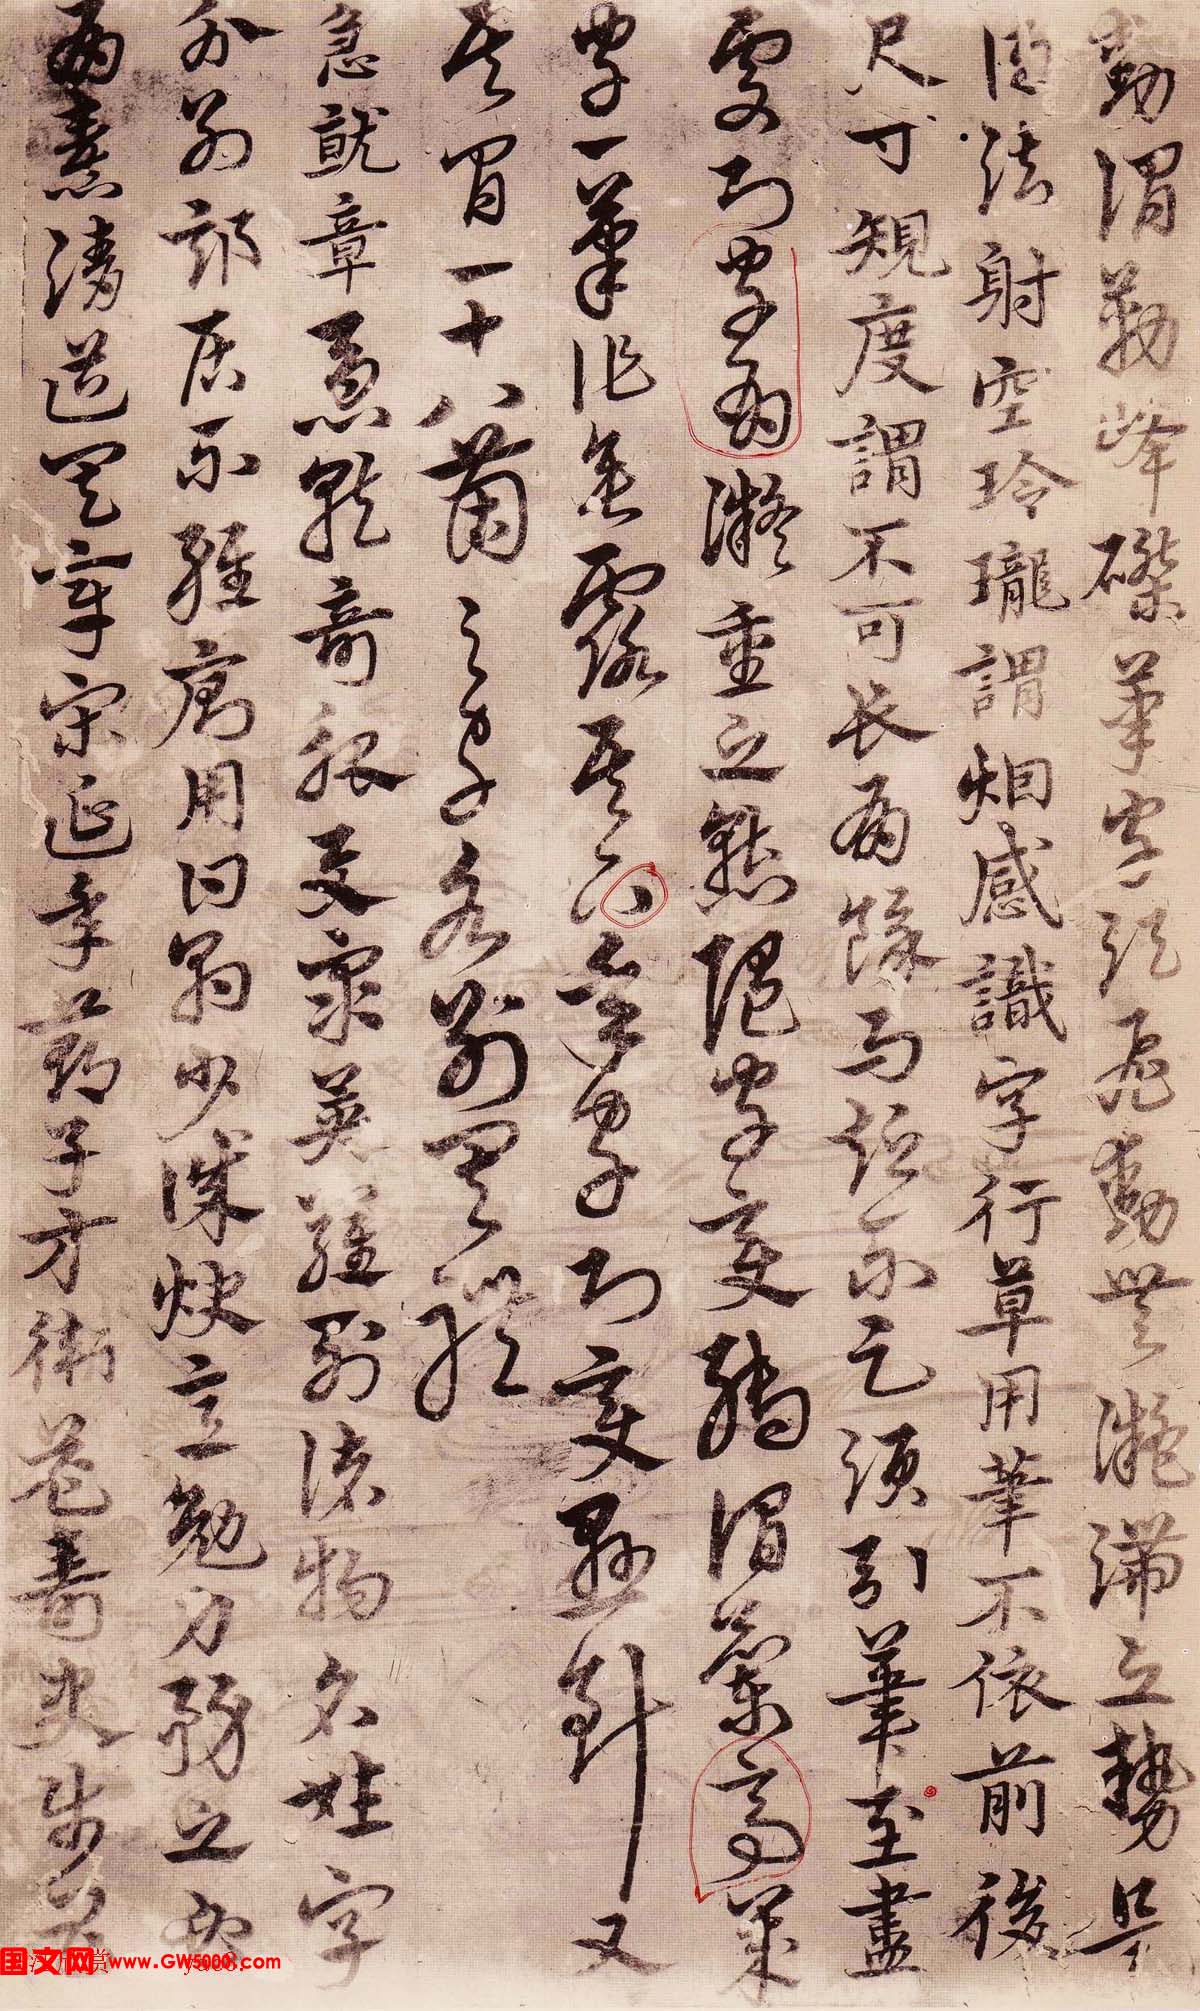 動謂勒峰磔筆字須飛動無凝滯之勢是
得法射空玲瓏謂烟感識字行草用筆不依前後
尺寸規度謂不可長有餘而短不足須引筆至盡
處則字有凝重之態隱字變
字一筆作垂露其下字則變懸針又
其間一十八有之字各別異體
急就章急就奇觚與衆異羅列諸物名姓字
分別部居不雜廁用日約少誠快意勉力務之必
有熹請道其章宋延年鄭子方衛益壽史步昌
国文网 www.GW5000.com